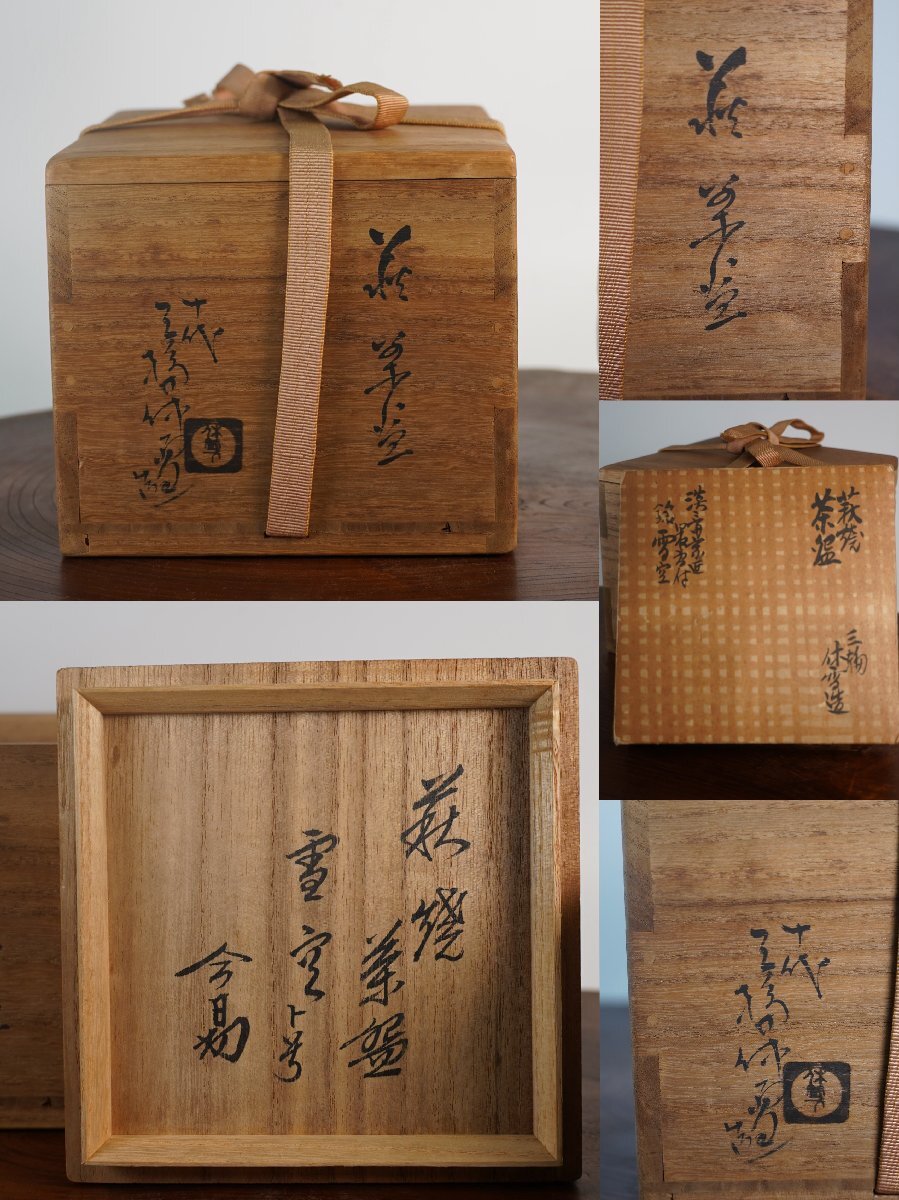 萩 茶盌
十代
三輪休雪造
萩 茶盌
萩焼
茶盌
淡々斎宗匠
書付
銘 雪空
三輪
休雪造
萩焼
茶盌
雪空ト号
今日
十代
三輪休雪造